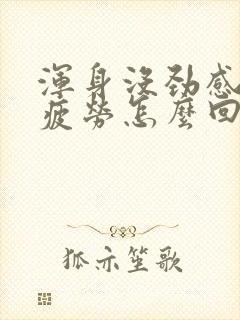 渾身沒勁感
疲勞怎麼回
狐亦笙歌